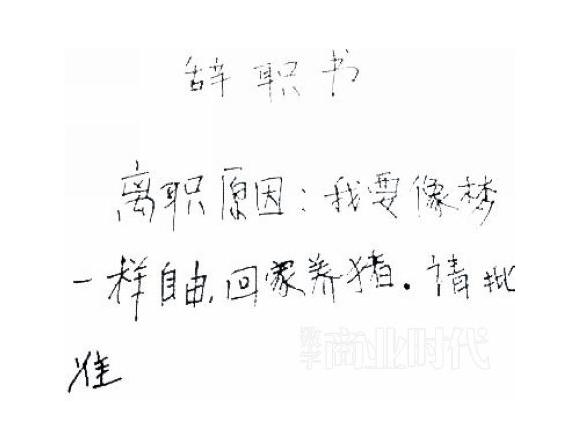 辞职书
离职原因：我要像梦
一样自由，回家养猪．请批
准
商业时代